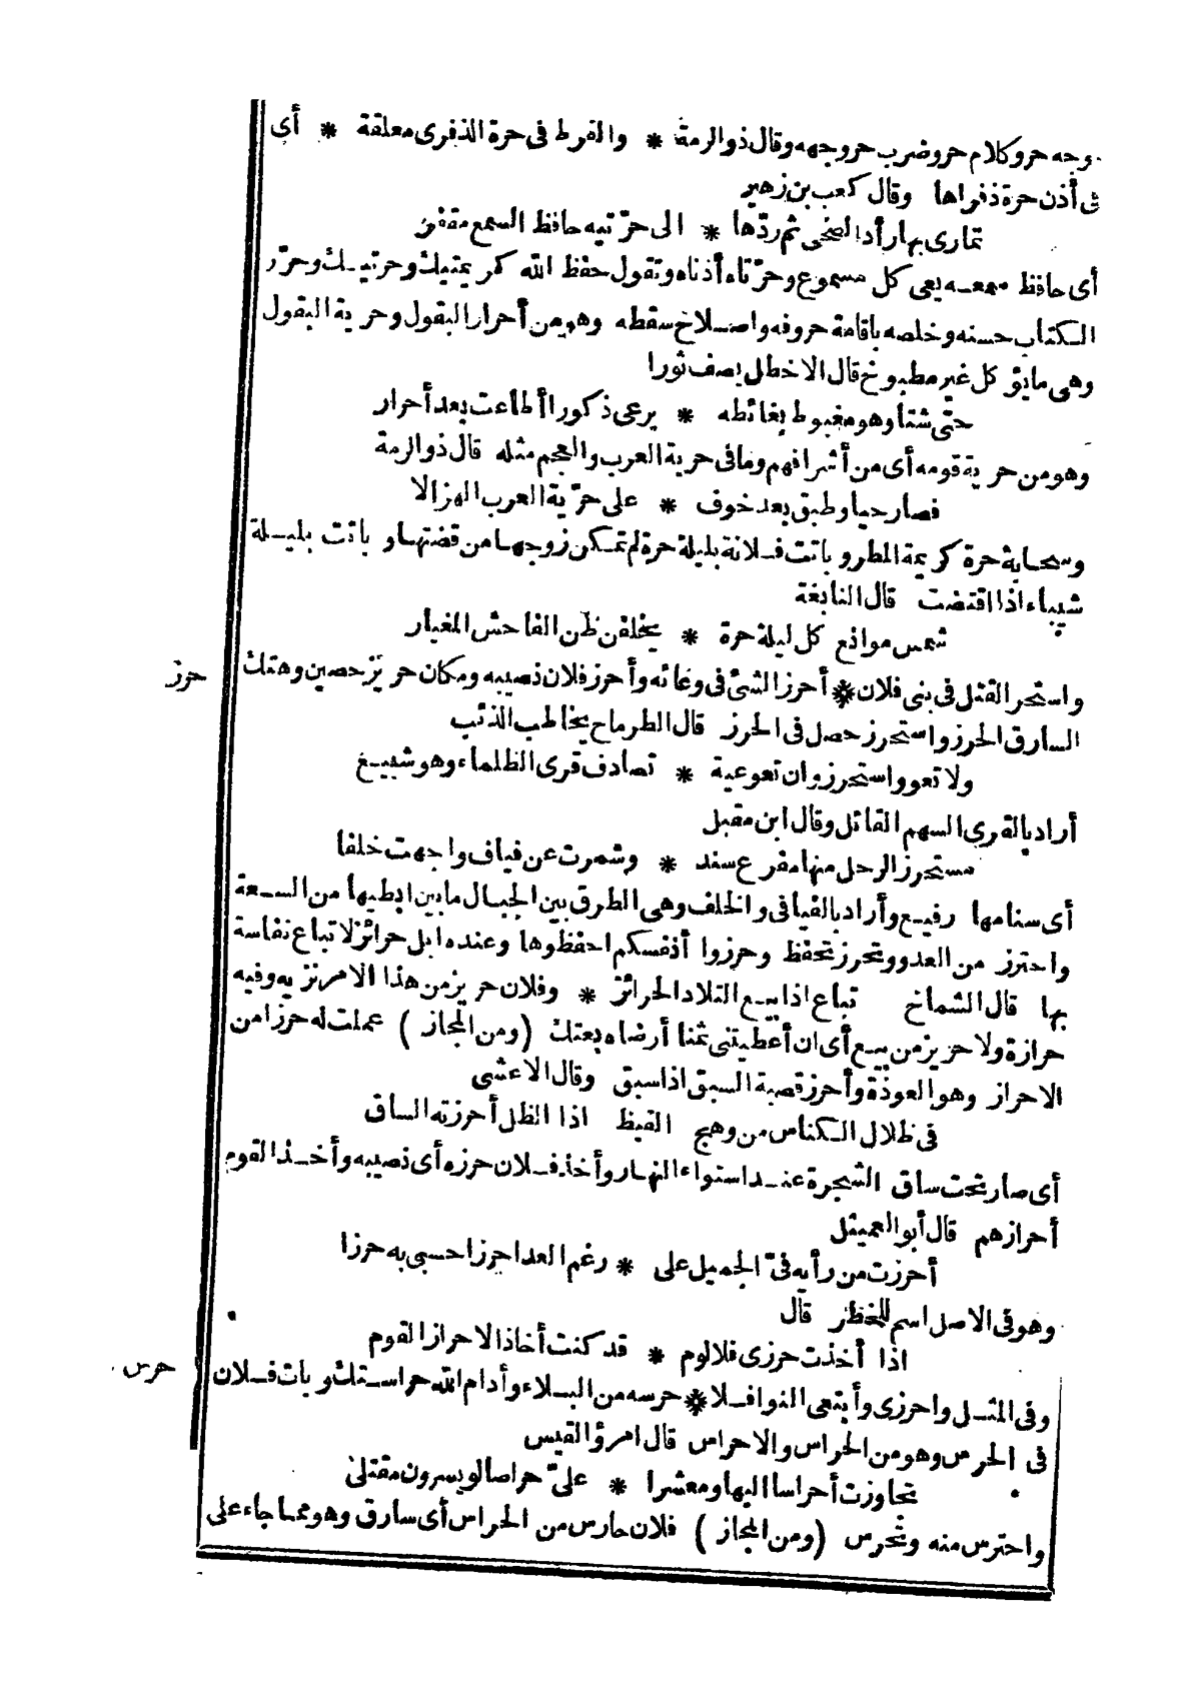 وجه حر وكلام حر وضرب حر وجهه وقال ذو الرمة * والقرط فى حرة الذفرى معلقة * أي
فى أذن حرة ذفراها وقال كعب بن زهير
تمارى بها رأد الضحى ثم ردّها * الى حرّتيه حافظ السمع مقفر
أى حافظ سمعه يعى كل مسموع وحرّتاه أذناه وتقول حفظ الله كريمتيك وحرتيك وحرّر
الكتاب حسنه وخلصه باقامة حروفه واصلاح سقطه وهو من أحرار البقول وحرية البقول
وهى ما يؤكل غير مطبوخ قال الاخطل يصف ثورا
حتى شتا وهو مغبوط بغائطه * يرعى ذكورا أطاعت بعد أحرار
وهو من حرية قومه أى من أشرافهم وما فى حرية العرب والعجم مثله قال ذو الرمة
فصار حيا وطبق بعد خوف * على حرّية العرب الهزالا
وسحابة حرة كريمة المطر وباتت فلانة بليلة حرة لم تمكن زوجها من قضتها وباتت بليلة
شيباء اذا اقتضت قال النابغة
شمس موانع كل ليلة حرة * يخلفن ظن الفاحش المغيار
واستحر القتل فى بنى فلان * أحرز الشئ فى وعائه وأحرز فلان نصيبه ومكان حريز حصين وهتك
حرز
السارق الحرز واستحرز حصل فى الحرز قال الطرماح يخاطب الذئب
ولا تعو واستحرز وان تعو عية * تصادف قرى الظلماء وهو شبيع
أراد بالقرى السهم القاتل وقال ابن مقبل
مستحرز الرحل منها مفرع سند * وشمرت عن فياف واجهت خلفا
أى سنامها رفيع وأراد بالفيافى والخلف وهى الطرق بين الجبال ما بين ابطيها من السعة
واحترز من العدو وتحرز تحفظ وحرزوا أنفسكم احفظوها وعنده ابل حرائز لا تباع نفاسة
بها قال الشماخ تباع اذا بيع التلاد الحرائز * وفلان حريز من هذا الامر نزيه وفيه
حرازة ولا حريز من بيع أى ان أعطيتنى ثمنا أرضاه بعتك (ومن المجاز) عملت له حرزا من
الاحراز وهو العوذة وأحرز قصبة السبق اذا سبق وقال الاعشى
فى ظلال الكناس من وهج القيظ اذا الظل أحرزته الساق
أى صار تحت ساق الشجرة عند استواء النهار وأخذ فلان حرزه أى نصيبه وأخذ القوم
أحرازهم قال أبو العميثل
أحرزت من رأيه فىّ الجميل على * رغم العدا حرزا حسبى به حرزا
وهو فى الاصل اسم للخطر قال
اذا أخذت حرزى فلا لوم * قد كنت أخاذا لاحراز القوم
وفى المثل واحرزى وأبتغى النوافلا * حرسه من البلاء وأدام الله حراستك وبات فلان
حرس
فى الحرس وهو من الحراس والاحراس قال امرؤ القيس
تجاوزت أحراسا اليها ومعشرا * علىّ حراصا لو يسرون مقتلى
واحترس منه وتحرس (ومن المجاز) فلان حارس من الحراس أى سارق وهو مما جاء على